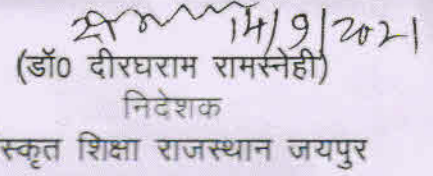 14/9/2021
(डॉ0 दीरघराम रामस्नेही)
निदेशक
स्कृत शिक्षा राजस्थान जयपुर